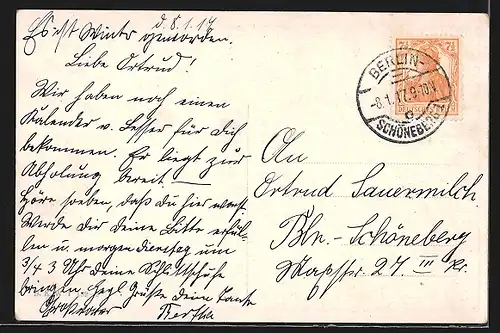 d. 8.1.17
Es ist Winter geworden.
Liebe Ortrud!
Wir haben noch einen
Kalender v. Lesser für Dich
bekommen. Er liegt zur
Abholung bereit —
Höre soeben, daß du hier warst
Werde dir deine Bitte erfül-
len u. morgen Dienstag um
3/4 3 Uhr deine Schlittschuhe
bringen. Herzl Grüße dein Tante
Grossvater Bertha
7½ 7½
BERLIN-
-8.1.17.9-10V.
SCHÖNEBERG 1
An
Ortrud Sauermilch
Bln.-Schöneberg
27 III